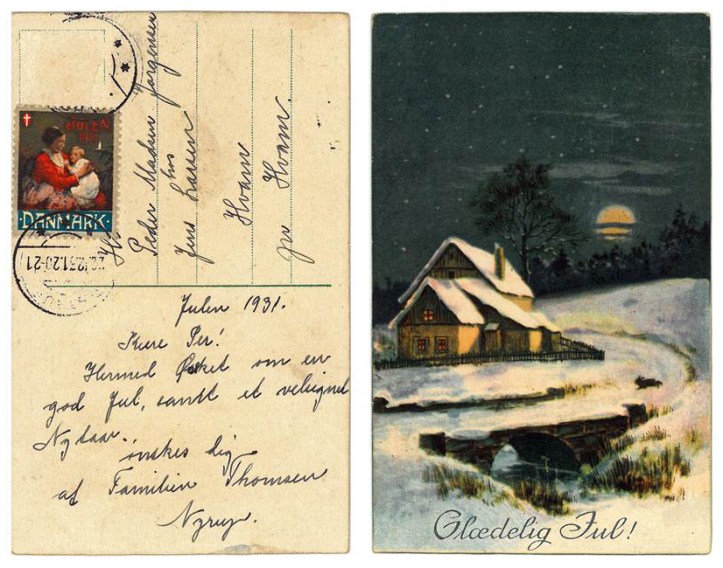 JULEN
DANMARK
Peder Madsen Jørgensen
hos
Jens Larsen
Hvam
pr Hvam.
Julen 1931.
Kære Per!
Hermed Ønsket om en
god Jul, samt et velsignet
Nytaar.
ønskes dig
af Familien Thomsen
Nyrup.
Glædelig Jul!